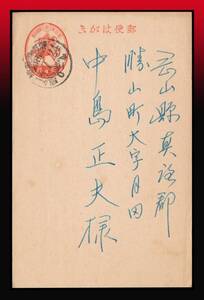 郵便はがき
岡山縣真庭郡
勝山町大字月田
中島正夫様